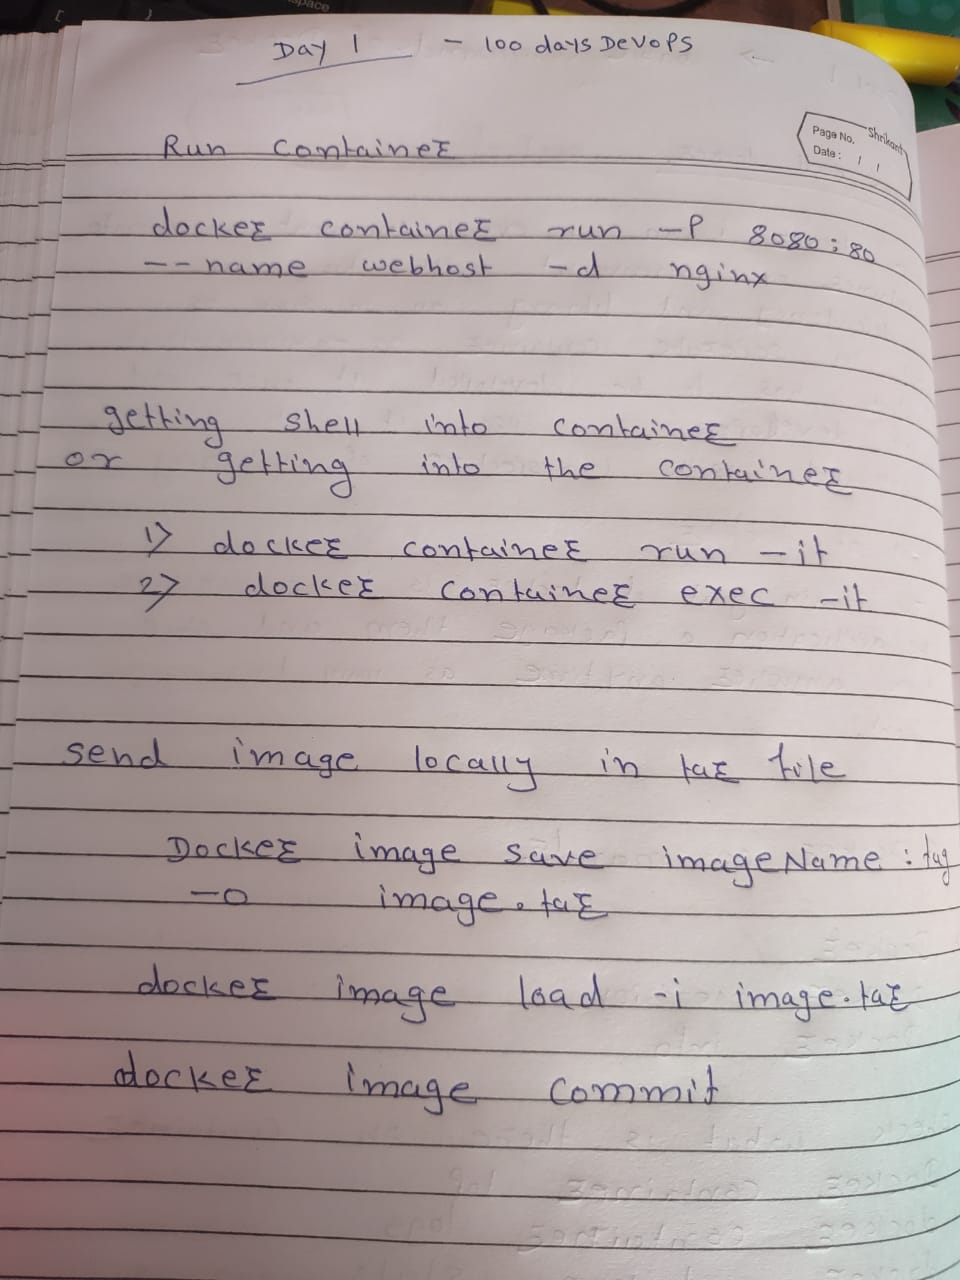 Day 1 - 100 days DevOps
Page No.
Shrikant
Date : / /
Run container
docker container run -P 8080:80
--name webhost -d nginx
getting shell into container
or getting into the container
1) docker container run -it
2) docker container exec -it
send image locally in tar file
Docker image save imageName:tag
-o image.tar
docker image load -i image.tar
docker image commit